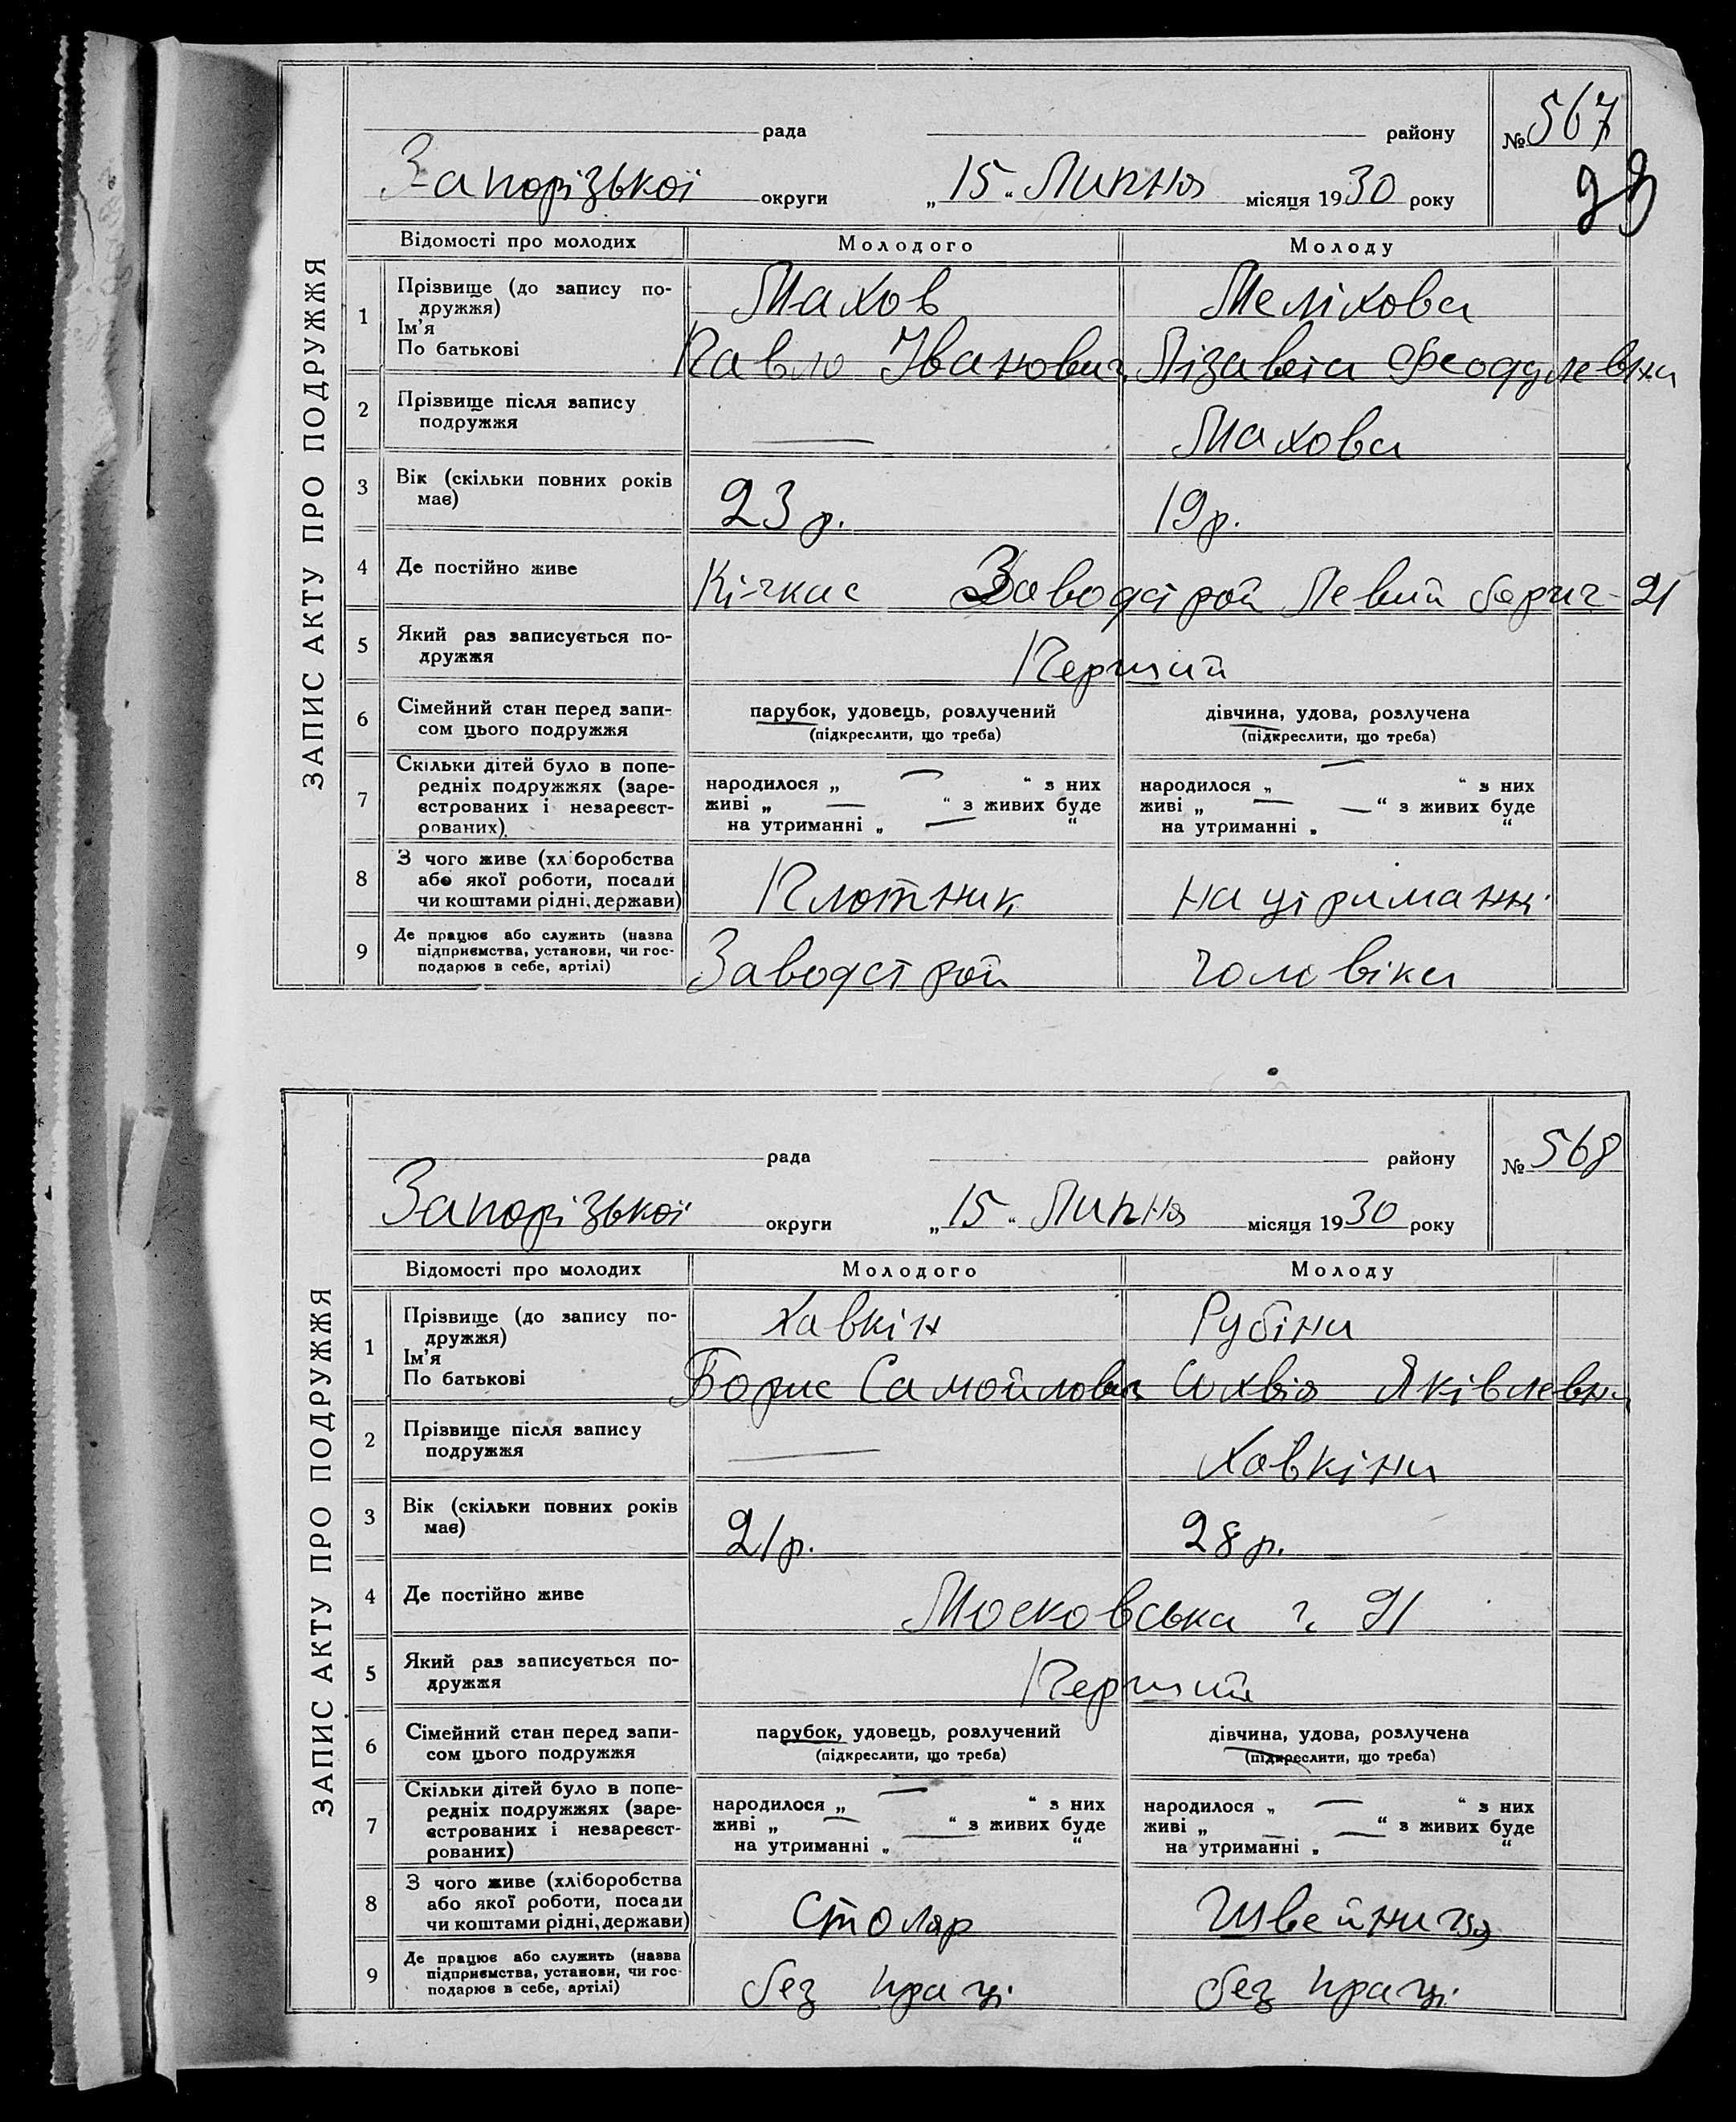 ЗАПИС АКТУ ПРО ПОДРУЖЖЯ
рада району № 567
Запорізької округи „15“ Липня місяця 1930 року
93
Відомості про молодих Молодого Молоду
1 Прізвище (до запису подружжя) Махов Меліхова
Ім'я
По батькові Павло Іванович Лізавета Феодулевна
2 Прізвище після запису подружжя — Махова
3 Вік (скільки повних років має) 23 р. 19 р.
4 Де постійно живе Кічкас Заводстрой Левий бериг - 21
5 Який раз записується подружжя Перший
6 Сімейний стан перед записом цього подружжя парубок, удовець, розлучений дівчина, удова, розлучена
(підкреслити, що треба) (підкреслити, що треба)
7 Скільки дітей було в попередніх подружжях (зареєстрованих і незареєстрованих)
народилося „ — “ з них народилося „ — “ з них
живі „ — “ з живих буде живі „ — “ з живих буде
на утриманні „ — “ на утриманні „ — “
8 З чого живе (хліборобства або якої роботи, посади чи коштами рідні, держави) Плотник на утриманні
9 Де працює або служить (назва підприємства, установи, чи господарює в себе, артілі) Заводстрой чоловіка
ЗАПИС АКТУ ПРО ПОДРУЖЖЯ
рада району № 568
Запорізької округи „15“ Липня місяця 1930 року
Відомості про молодих Молодого Молоду
1 Прізвище (до запису подружжя) Хавкін Рубіна
Ім'я
По батькові Борис Самойлович Сохвія Яківлевна
2 Прізвище після запису подружжя — Хавкіна
3 Вік (скільки повних років має) 21 р. 28 р.
4 Де постійно живе Московська ч. 21
5 Який раз записується подружжя Перший
6 Сімейний стан перед записом цього подружжя парубок, удовець, розлучений дівчина, удова, розлучена
(підкреслити, що треба) (підкреслити, що треба)
7 Скільки дітей було в попередніх подружжях (зареєстрованих і незареєстрованих)
народилося „ — “ з них народилося „ — “ з них
живі „ — “ з живих буде живі „ — “ з живих буде
на утриманні „ — “ на утриманні „ — “
8 З чого живе (хліборобства або якої роботи, посади чи коштами рідні, держави) Столяр Швейниця
9 Де працює або служить (назва підприємства, установи, чи господарює в себе, артілі) без праці без праці